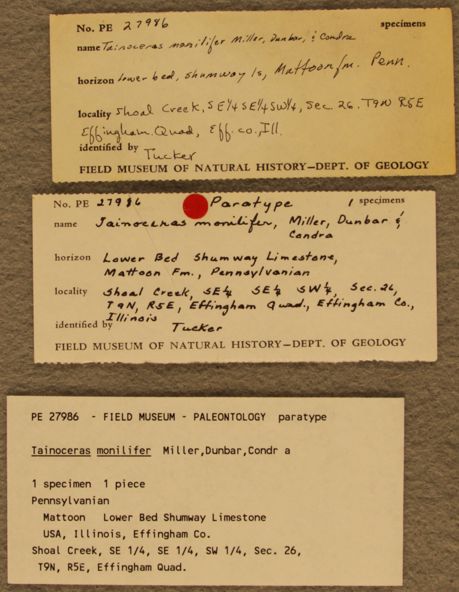 No. PE 27986 specimens
name Tainoceras monilifer Miller, Dunbar, & Condra
horizon lower bed, Shumway ls, Mattoon fm. Penn.
locality Shoal Creek, SE¼ SE¼ SW¼, Sec. 26. T9N R5E
Effingham Quad, Eff. co., Ill.
identified by Tucker
FIELD MUSEUM OF NATURAL HISTORY—DEPT. OF GEOLOGY
No. PE 27986 Paratype 1 specimens
name Tainoceras monilifer, Miller, Dunbar &
Condra
horizon Lower Bed Shumway Limestone,
Mattoon Fm., Pennsylvanian
locality Shoal Creek, SE¼ SE¼ SW¼, Sec. 26,
T9N, R5E, Effingham Quad., Effingham Co.,
Illinois
identified by Tucker
FIELD MUSEUM OF NATURAL HISTORY—DEPT. OF GEOLOGY
PE 27986 - FIELD MUSEUM - PALEONTOLOGY paratype
Tainoceras monilifer Miller,Dunbar,Condr a
1 specimen 1 piece
Pennsylvanian
Mattoon Lower Bed Shumway Limestone
USA, Illinois, Effingham Co.
Shoal Creek, SE 1/4, SE 1/4, SW 1/4, Sec. 26,
T9N, R5E, Effingham Quad.